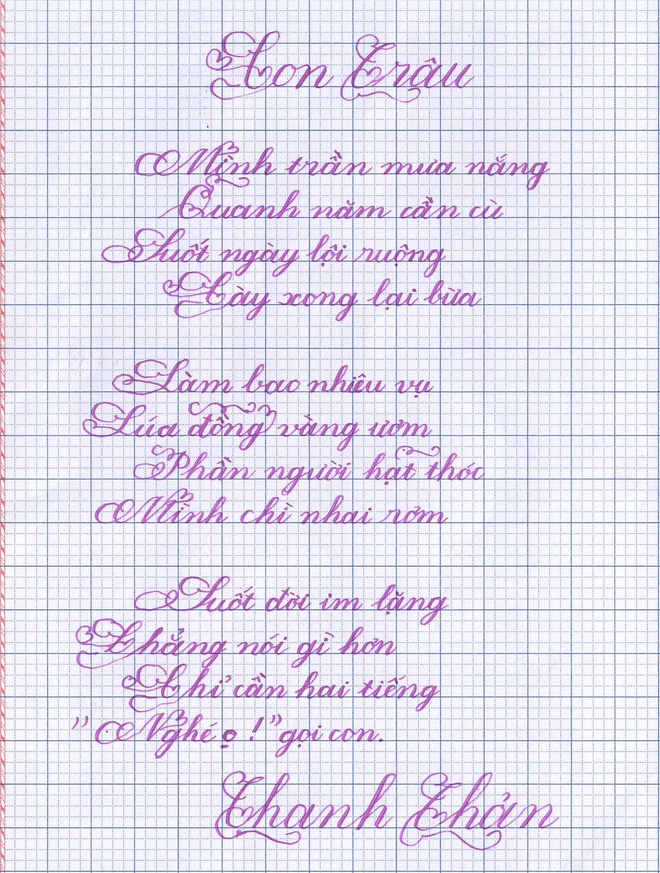 Con Trâu
Mình trần mưa nắng
Quanh năm cần cù
Suốt ngày lội ruộng
Cày xong lại bừa
Làm bao nhiêu vụ
Lúa đồng vàng ươm
Phần người hạt thóc
Mình chỉ nhai rơm
Suốt đời im lặng
Chẳng nói gì hơn
Chỉ cần hai tiếng
"Nghé ọ!" gọi con.
Thanh Thản